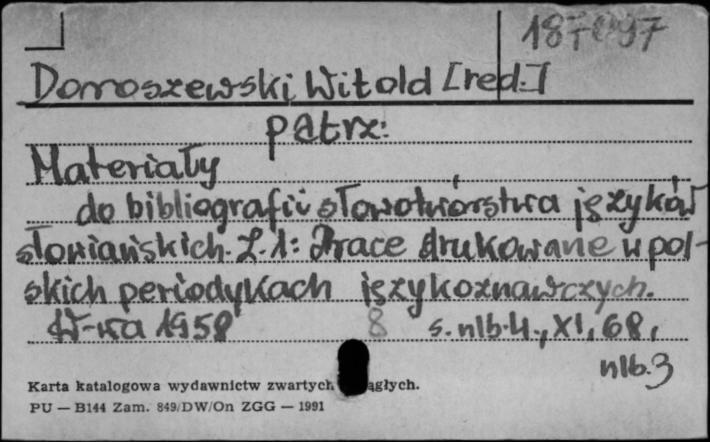 Doroszewski Witold [red.]
patrz:
Materiały
do bibliografii słowotwórstwa języków
słowiańskich. Z. 1: Prace drukowane w pol-
skich periodykach językoznawczych.
W-wa 1958 8 s. nlb. 4, XI, 68,
nlb. 3
Karta katalogowa wydawnictw zwartych
PU — B144 Zam. 849/DW/On ZGG — 1991